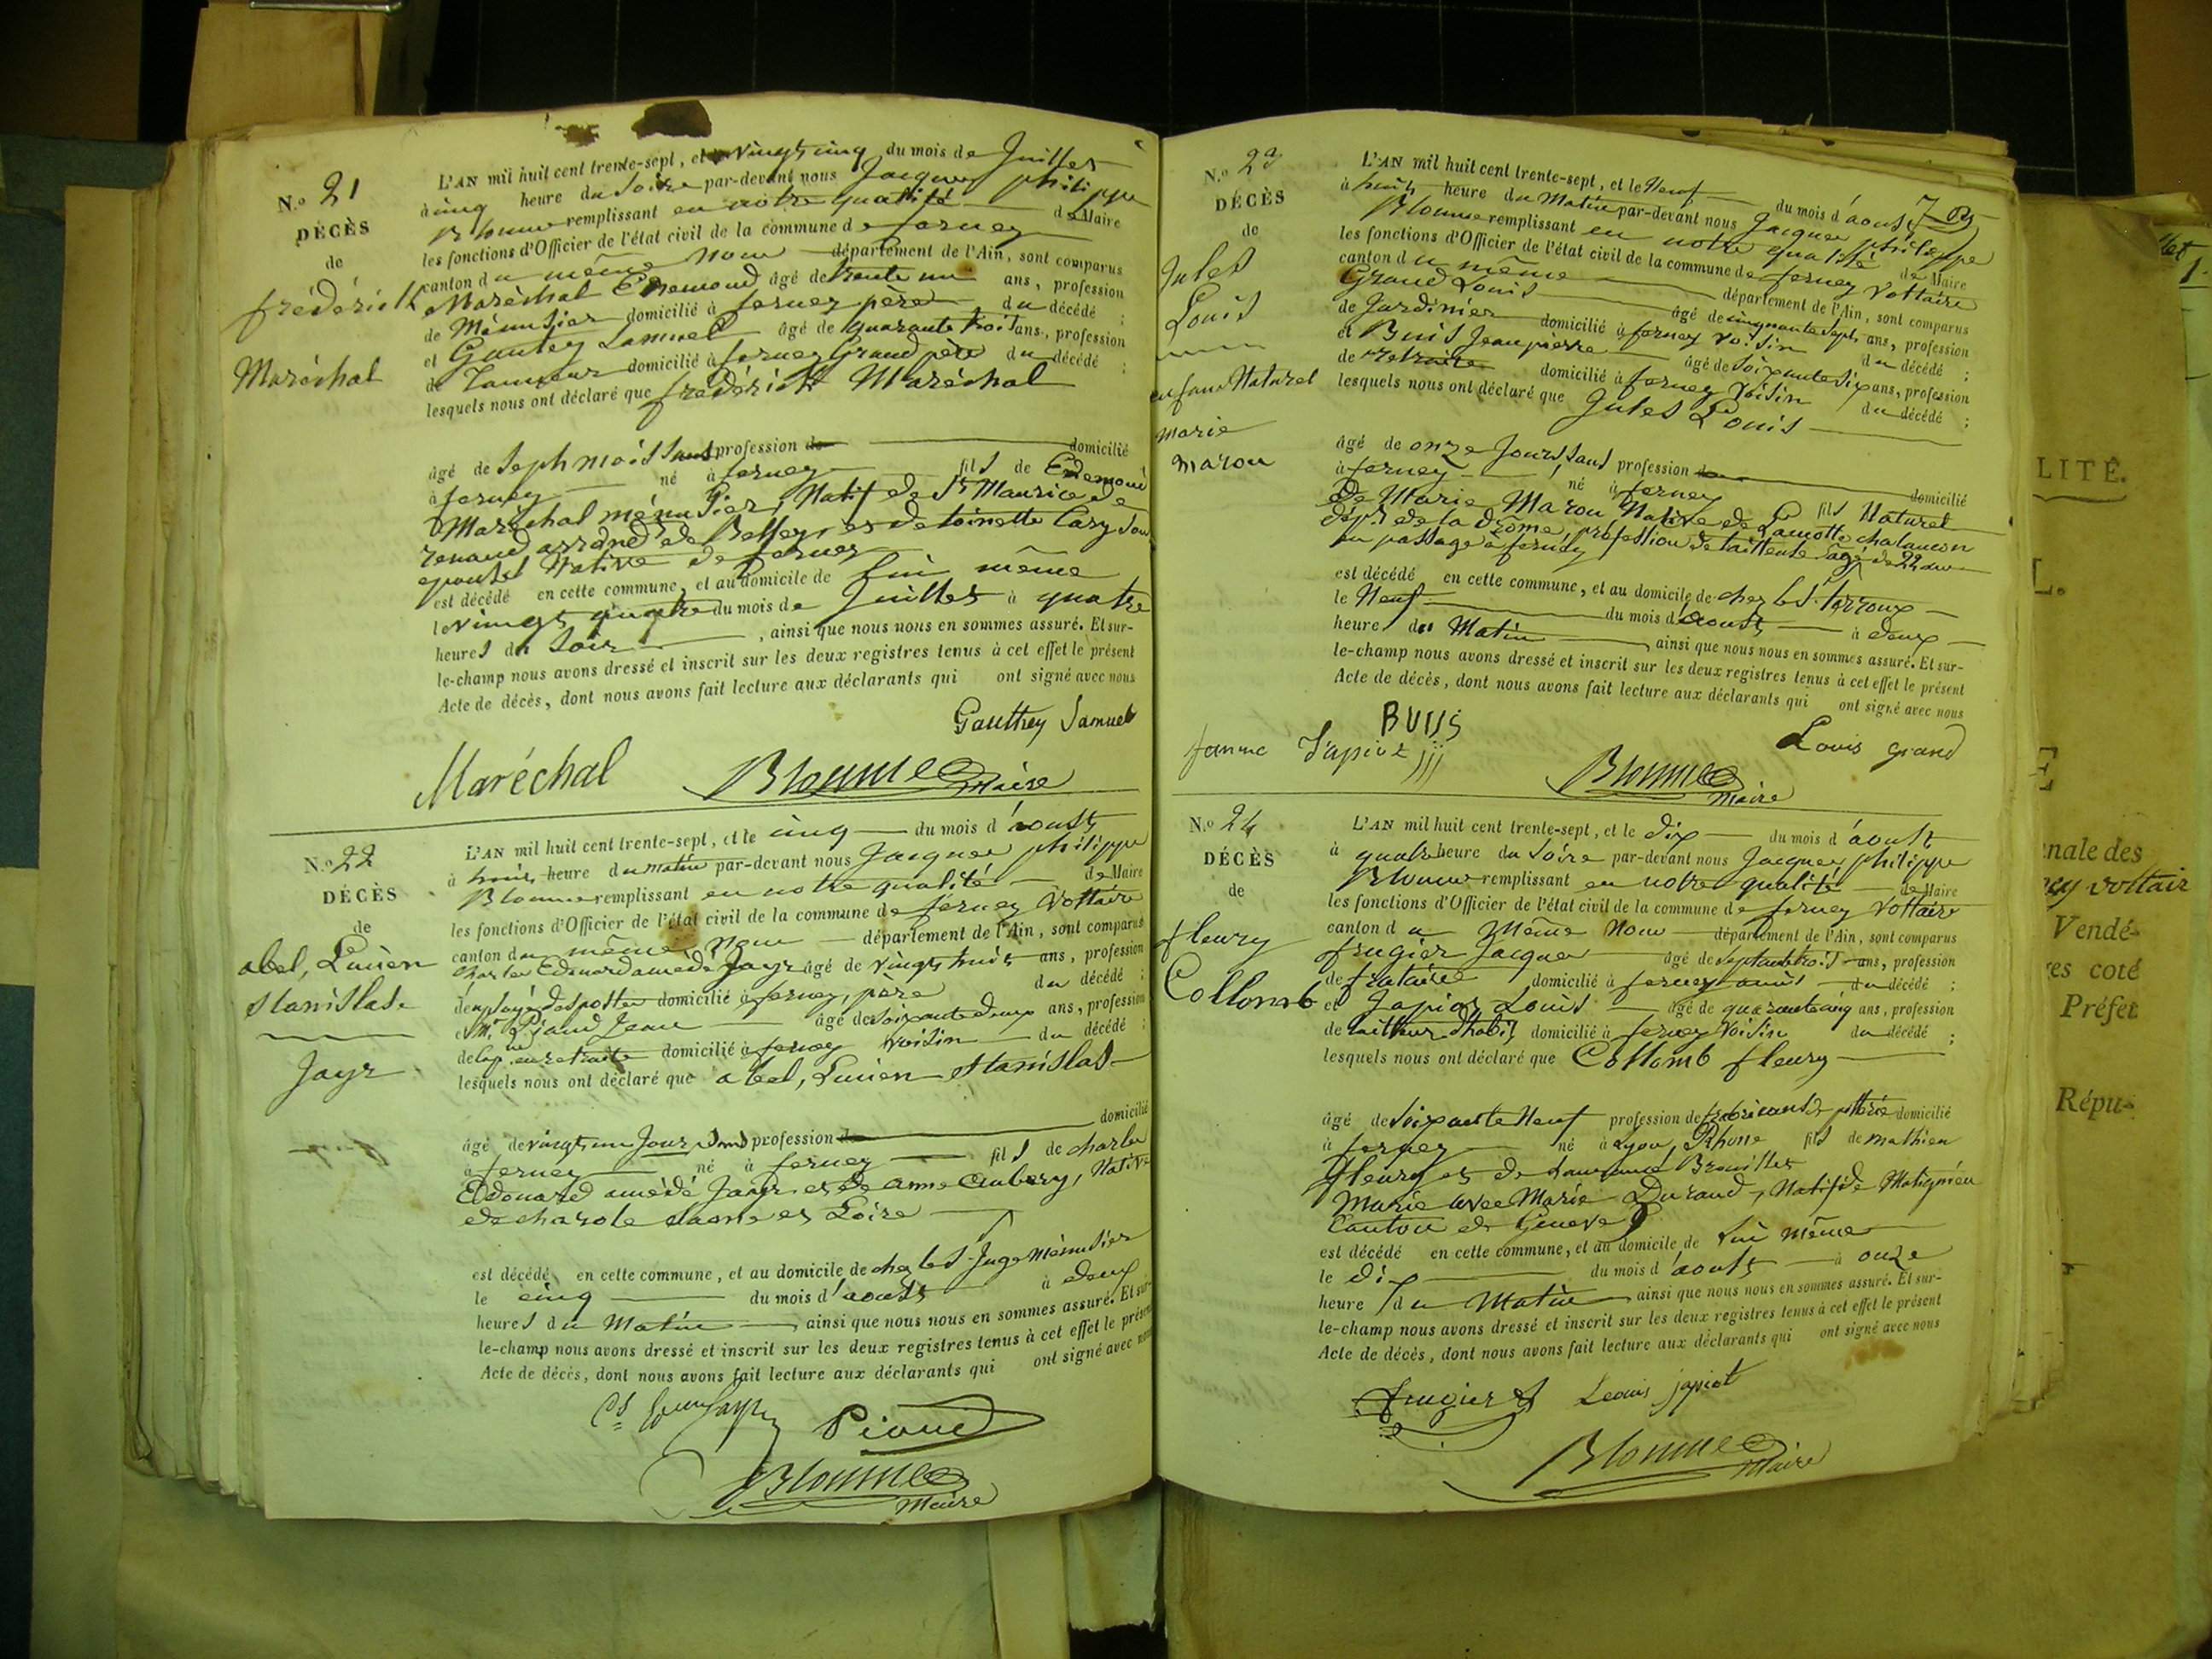 N.o 21
DÉCÈS
de
frédérich
Maréchal
L'AN mil huit cent trente-sept, et le vingt cinq du mois de Juillet
à cinq heure du Soire par-devant nous Jacques philippe
Blonme remplissant en notre qualité de Maire
les fonctions d'Officier de l'état civil de la commune de ferney
canton du même Nom département de l'Ain, sont comparus
Maréchal âgé de trente un ans, profession
de Ménusier domicilié à ferney père du décédé ;
et Gautey Samuel âgé de quarante trois ans, profession
de Tanneur domicilié à ferney Grand père du décédé ;
lesquels nous ont déclaré que frédérich Maréchal
âgé de Sept mois Sans profession de domicilié
à ferney né à ferney fils de
Maréchal ménusier, Natif de St Maurice de
arrond de Belley, et de toinette Cary Son
epouse Native de ferney
est décédé en cette commune, et au domicile de lui même
le vingt quatre du mois de Juillet à quatre
heures du Soir, ainsi que nous nous en sommes assuré. Et sur-
le-champ nous avons dressé et inscrit sur les deux registres tenus à cet effet le présent
Acte de décès, dont nous avons fait lecture aux déclarants qui ont signé avec nous
Gauthey Samuel
Maréchal Blonme Maire
N.o 22
DÉCÈS
de
abel, Lucien
Stanislas
Jayr
L'AN mil huit cent trente-sept, et le cinq du mois d'aoust
à huit heure du matin par-devant nous Jacques philippe
Blonme remplissant en notre qualité de Maire
les fonctions d'Officier de l'état civil de la commune de ferney Voltaire
canton du même Nom département de l'Ain, sont comparus
Charles Edouard amédé Jayr âgé de vingt huit ans, profession
d'employé des postes domicilié à ferney, père du décédé ;
et Mr Piaud Jean âgé de soixante deux ans, profession
de Cap.ne en retraite domicilié à ferney voisin du décédé ;
lesquels nous ont déclaré que abel, Lucien Stanislas
âgé de vingt un Jour Sans profession de domicilié
à ferney né à ferney fils de charles
Edouard amédé Jayr et de anne Aubery, Native
de charole Saone et Loire
est décédé en cette commune, et au domicile de chez le S. Juge Ménusier
le cinq du mois d'aoust à deux
heures du Matin ainsi que nous nous en sommes assuré. Et sur-
le-champ nous avons dressé et inscrit sur les deux registres tenus à cet effet le présent
Acte de décès, dont nous avons fait lecture aux déclarants qui ont signé avec nous
Piaud
Blonme
Maire
N.o 23
DÉCÈS
de
Jules
Louis
enfant Naturel
Marie
Marou
L'AN mil huit cent trente-sept, et le Neuf du mois d'aoust
à huit heure du Matin par-devant nous Jacques philippe
Blonme remplissant en notre qualité de Maire
les fonctions d'Officier de l'état civil de la commune de ferney Voltaire
canton du même département de l'Ain, sont comparus
Grand Louis âgé de cinquante Sept ans, profession
de Jardinier domicilié à ferney voisin du décédé ;
et Buis Jean pierre âgé de Soixante Six ans, profession
de retraite domicilié à ferney voisin du décédé ;
lesquels nous ont déclaré que Jules Louis
âgé de onze Jours Sans profession de domicilié
à ferney, né à ferney fils Naturel
de Marie Marou Native de Lamotte chalancon
dépt de la Drome, profession de tailleuse âgé de 22 ans
en passage à ferney
est décédé en cette commune, et au domicile de chez le S.
le Neuf du mois d'aoust à deux
heure du Matin ainsi que nous nous en sommes assuré. Et sur-
le-champ nous avons dressé et inscrit sur les deux registres tenus à cet effet le présent
Acte de décès, dont nous avons fait lecture aux déclarants qui ont signé avec nous
femme Japiot BUIS Louis Grand
Blonme
Maire
N.o 24
DÉCÈS
de
fleury
Collomb
L'AN mil huit cent trente-sept, et le dix du mois d'aoust
à quatre heure du Soire par-devant nous Jacques philippe
Blonme remplissant en notre qualité de Maire
les fonctions d'Officier de l'état civil de la commune de ferney Voltaire
canton du Même Nom département de l'Ain, sont comparus
frugier Jacques âgé de Septante trois ans, profession
de domicilié à ferney amis du décédé ;
et Japiot Louis âgé de quarante cinq ans, profession
de tailleur d'habit domicilié à ferney voisin du décédé ;
lesquels nous ont déclaré que Collomb fleury
âgé de Soixante Neuf profession de fabricant de potterie domicilié
à ferney né à Lyon, Rhone fils de Mathieu
fleury et de
Marie avec Marie Durand, Natif de Matignieu
Canton de Geneve
est décédé en cette commune, et au domicile de Lui même
le dix du mois d'aoust à onze
heure du Matin ainsi que nous nous en sommes assuré. Et sur-
le-champ nous avons dressé et inscrit sur les deux registres tenus à cet effet le présent
Acte de décès, dont nous avons fait lecture aux déclarants qui ont signé avec nous
Frugier Louis japiot
Blonme
Maire
LITÉ.
nale des
voltair
Vendé-
res coté
Préfet
Répu-